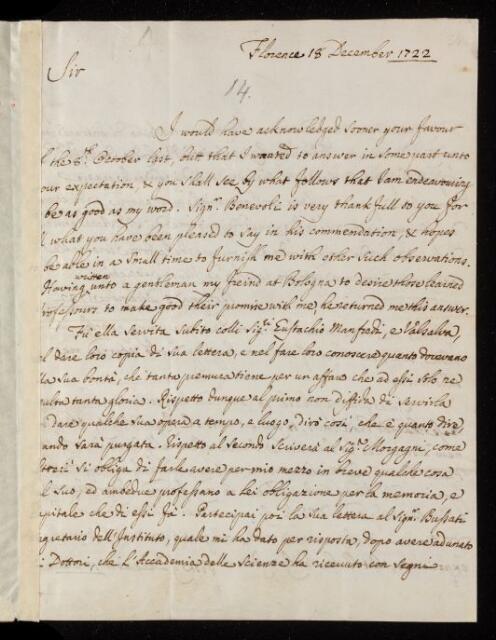 Florence 18 December 1722
Sir
14.
I would have acknowledged sooner your favour
the 8th. October last, butt that I wanted to answer in some part unto
our expectation, & you shall see by what follows that I am endeavouring
be as good as my word. Signr. Bonevoli is very thankfull to you for
what you have been pleased to say in his commendation, & hopes
be able in a small time to furnish me with other such observations.
written
Having unto a gentleman my freind at Bologna to desire those learned
rofessours to make good their promise with me, he returned me this answer.
Fù ella servita subito colli Sigri. Eustachio Manfredi, e Valsalva,
el dare loro copia di sua lettera, e nel fare loro conoscere quanto dovevano
la sua bontà, che tanta premura tiene per un affare che ad essi solo re
ulta tanta gloria. Rispetto dunque al primo non diffida di servirla
dare qualche sua opera a tempo, e luogo, dirò così, che è quanto dire,
ando sarà purgata. Rispetto al secondo scriverà al Sigr. Morgagni, come
si obliga di farle avere per mio mezzo in breve qualche cosa
l suo, ed ambedue professano a lei obligazione per la memoria, e
apitale che di essi fà. Partecipai poi la sua lettera al Signr. Bussati
gretario dell'Instituto, quale mi ha dato per risposta, dopo avere adunato
i Dottori, che l'Accademia delle Scienze ha ricevuto con segni